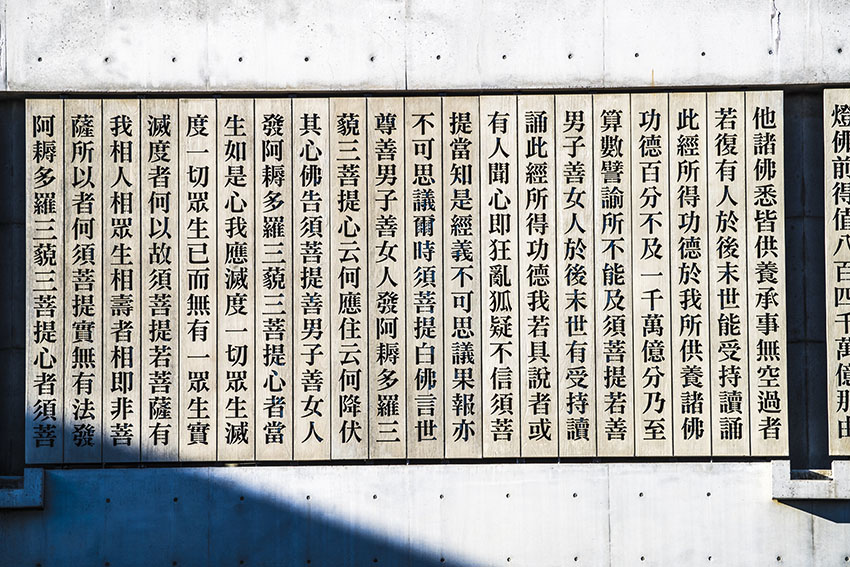 燈佛前得值八百四千萬億那由
他諸佛悉皆供養承事無空過者
若復有人於後末世能受持讀誦
此經所得功德於我所供養諸佛
功德百分不及一千萬億分乃至
算數譬諭所不能及須菩提若善
男子善女人於後末世有受持讀
誦此經所得功德我若具說者或
有人聞心即狂亂狐疑不信須菩
提當知是經義不可思議果報亦
不可思議爾時須菩提白佛言世
尊善男子善女人發阿耨多羅三
藐三菩提心云何應住云何降伏
其心佛告須菩提善男子善女人
發阿耨多羅三藐三菩提心者當
生如是心我應滅度一切眾生滅
度一切眾生已而無有一眾生實
滅度者何以故須菩提若菩薩有
我相人相眾生相壽者相即非菩
薩所以者何須菩提實無有法發
阿耨多羅三藐三菩提心者須菩